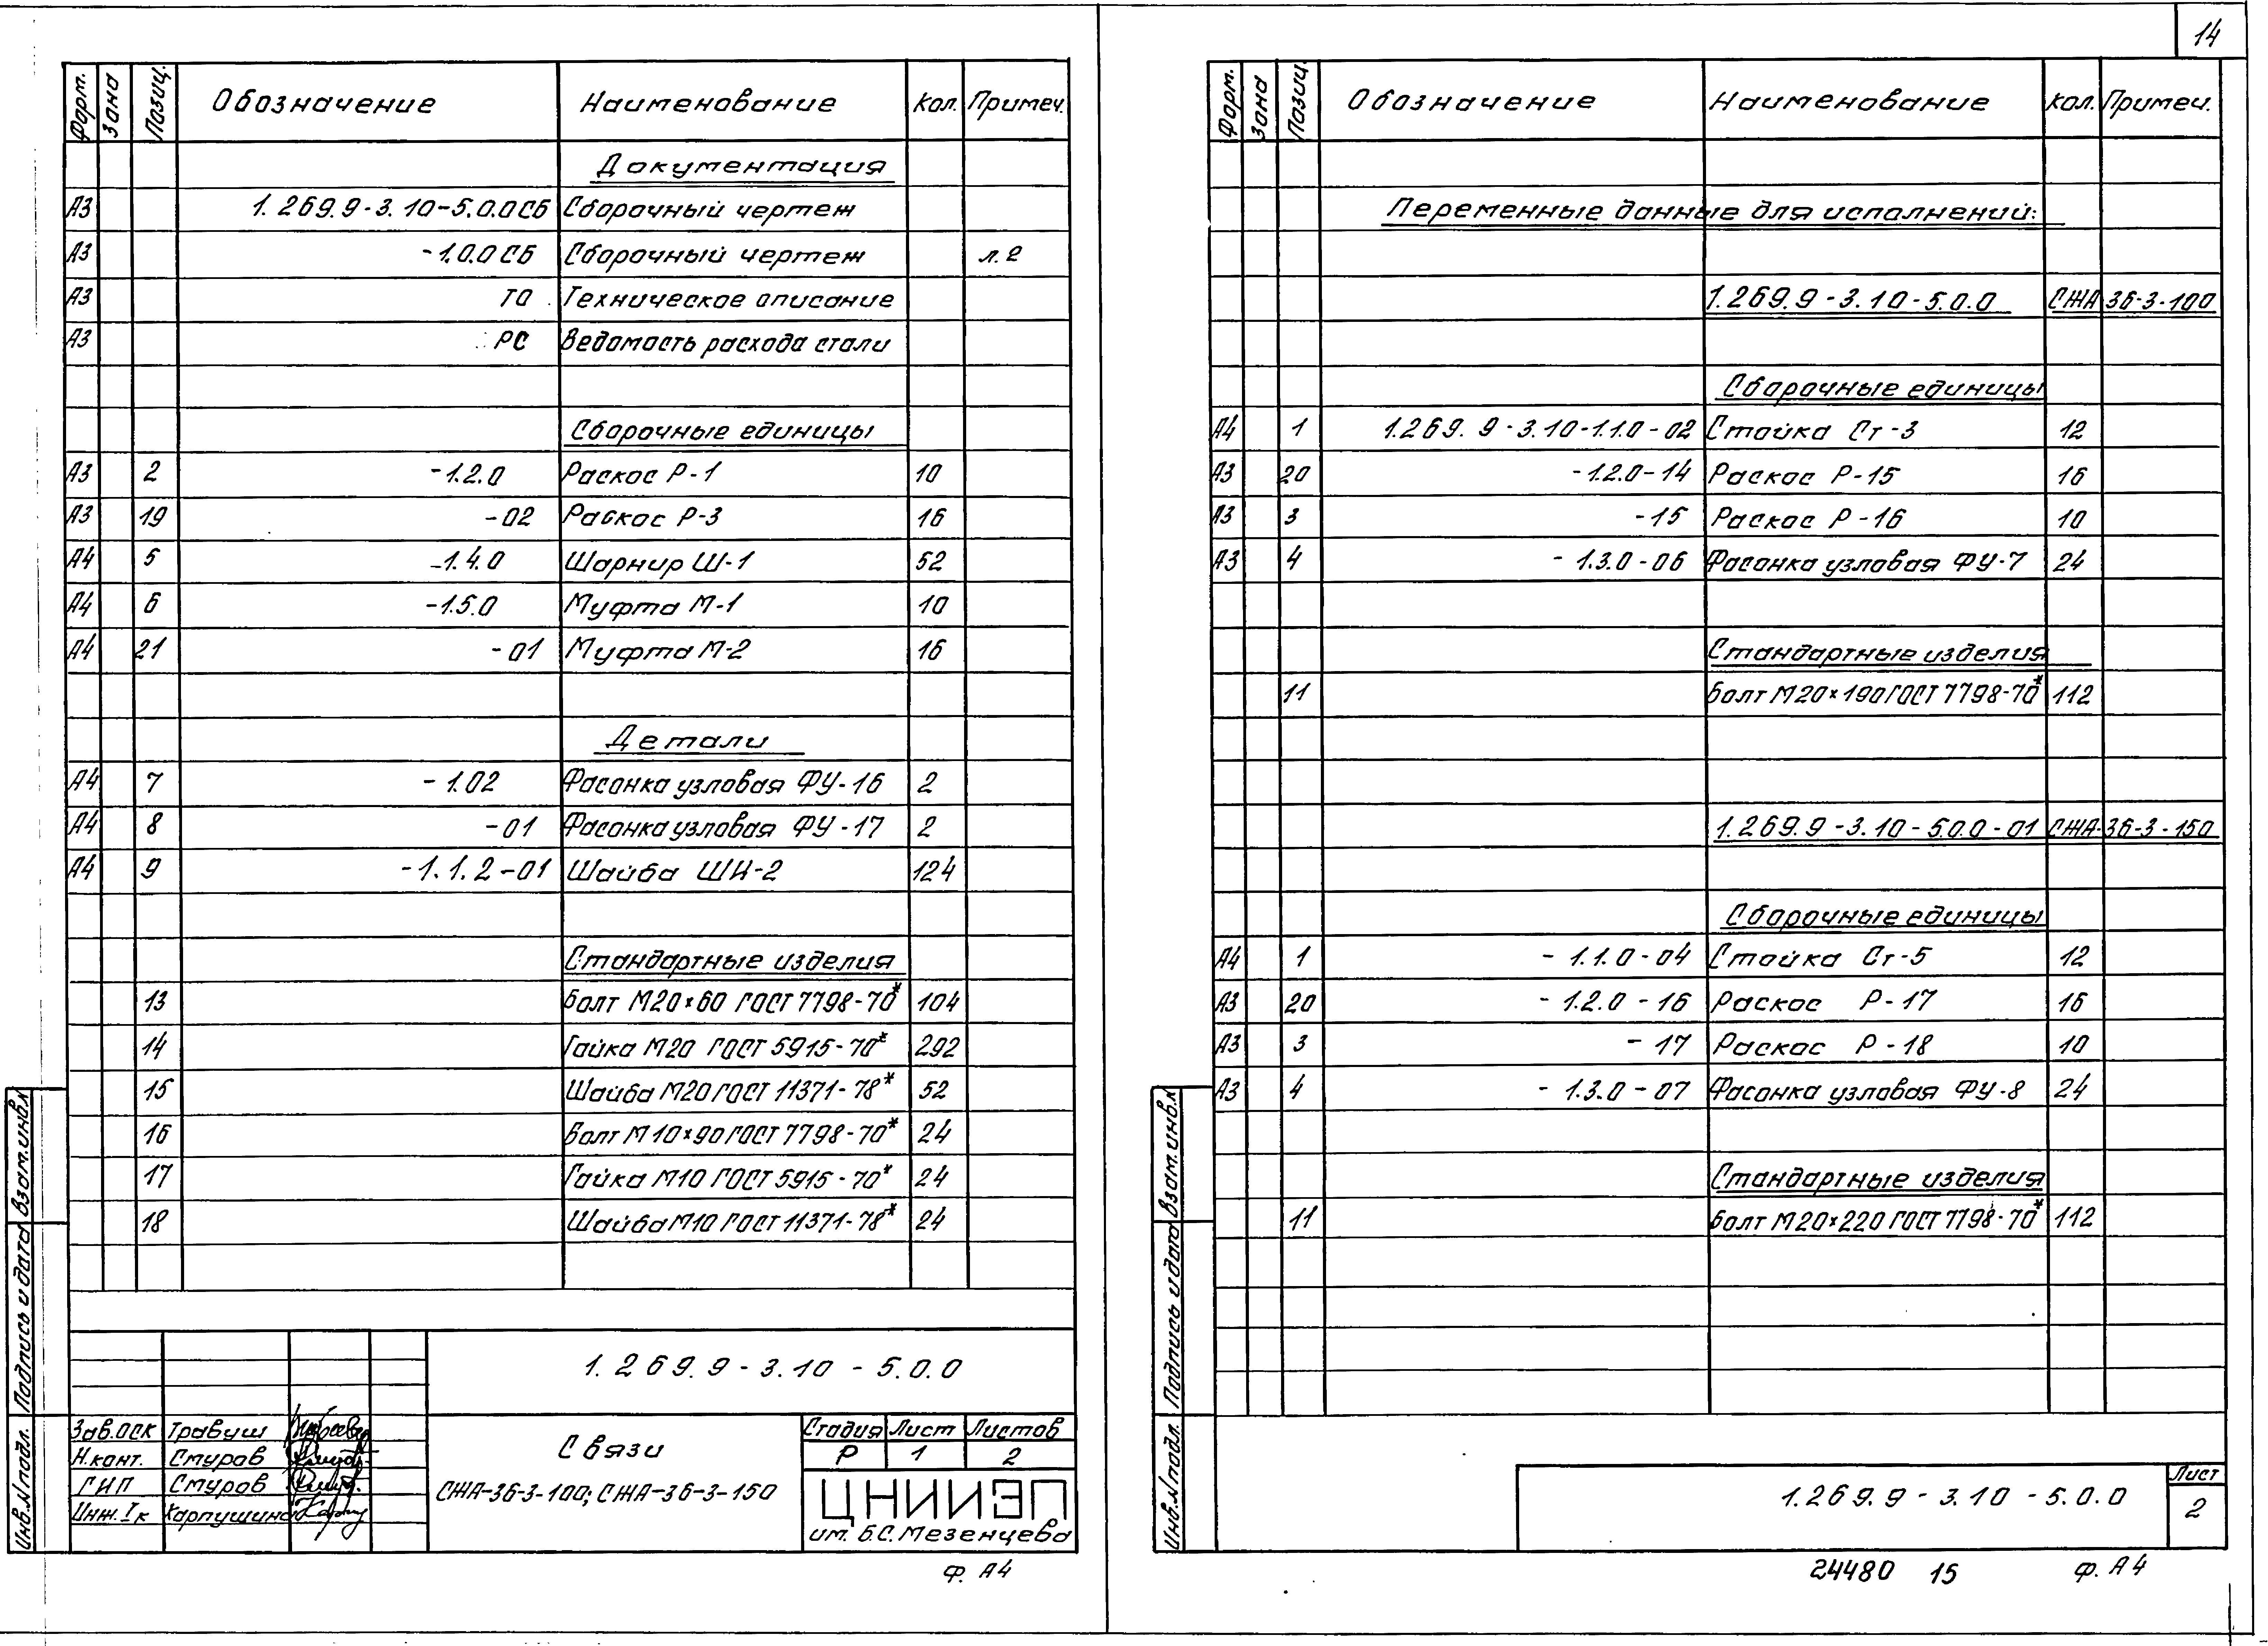 14
Форм. Зона Позиц. Обозначение Наименование Кол. Примеч.
Документация
А3 1.269.9-3.10-5.0.0СБ Сборочный чертеж
А3 -1.0.0СБ Сборочный чертеж л.2
А3 ТО Техническое описание
А3 РС Ведомость расхода стали
Сборочные единицы
А3 2 -1.2.0 Раскос Р-1 10
А3 19 -02 Раскос Р-3 16
А4 5 -1.4.0 Шарнир Ш-1 52
А4 6 -1.5.0 Муфта М-1 10
А4 21 -01 Муфта М-2 16
Детали
А4 7 -1.02 Фасонка узловая ФУ-16 2
А4 8 -01 Фасонка узловая ФУ-17 2
А4 9 -1.1.2-01 Шайба ШК-2 124
Стандартные изделия
13 Болт М20×60 ГОСТ 7798-70* 104
14 Гайка М20 ГОСТ 5915-70* 292
15 Шайба М20 ГОСТ 11371-78* 52
16 Болт М10×90 ГОСТ 7798-70* 24
17 Гайка М10 ГОСТ 5915-70* 24
18 Шайба М10 ГОСТ 11371-78* 24
1.269.9-3.10-5.0.0
Зав.ОСК Травуш
Н.конт. Смуров
ГИП Смуров
Инж.Iк Харпушина
Связи
СЖА-36-3-100; СЖА-36-3-150
Стадия Лист Листов
Р 1 2
ЦНИИЭП
им. Б.С.Мезенцева
Инв.N подл. Подпись и дата Взам.инв.N
Ф. А4
Форм. Зона Позиц. Обозначение Наименование Кол. Примеч.
Переменные данные для исполнений:
1.269.9-3.10-5.0.0 СЖА 36-3-100
Сборочные единицы
А4 1 1.269.9-3.10-1.1.0-02 Стойка Ст-3 12
А3 20 -1.2.0-14 Раскос Р-15 16
А3 3 -15 Раскос Р-16 10
А3 4 -1.3.0-06 Фасонка узловая ФУ-7 24
Стандартные изделия
11 Болт М20×190 ГОСТ 7798-70* 112
1.269.9-3.10-5.0.0-01 СЖА-36-3-150
Сборочные единицы
А4 1 -1.1.0-04 Стойка Ст-5 12
А3 20 -1.2.0-16 Раскос Р-17 16
А3 3 -17 Раскос Р-18 10
А3 4 -1.3.0-07 Фасонка узловая ФУ-8 24
Стандартные изделия
11 Болт М20×220 ГОСТ 7798-70* 112
Инв.N подл. Подпись и дата Взам.инв.N
1.269.9-3.10-5.0.0
Лист
2
24480 15 Ф. А4